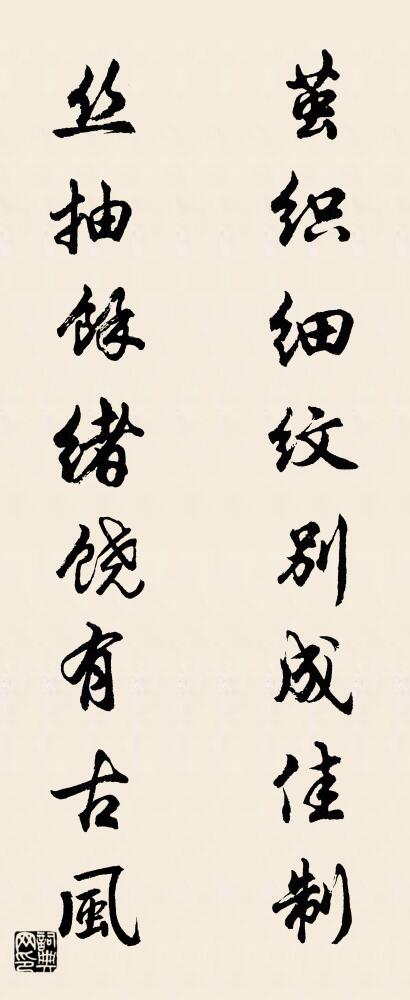 茧织细纹别成佳制
丝抽馀绪饶有古風
詞典网印